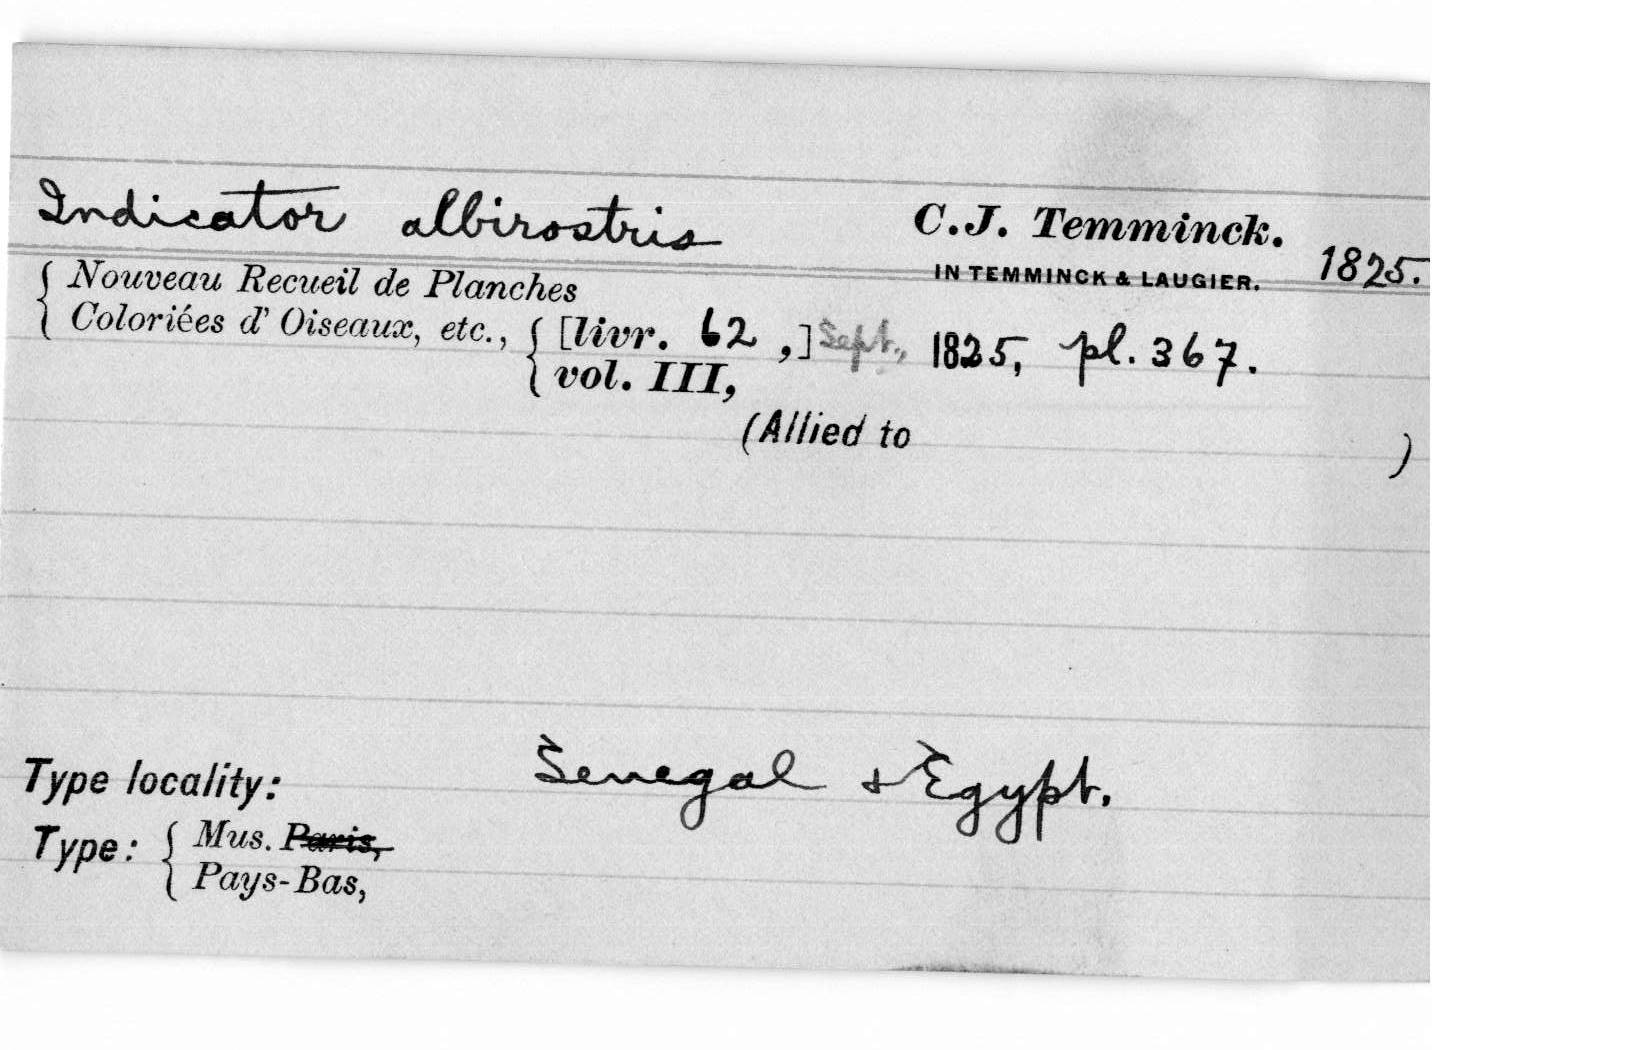 Indicator albirostris C.J. Temminck.
IN TEMMINCK & LAUGIER. 1825.
{ Nouveau Recueil de Planches
Coloriées d' Oiseaux, etc., { [livr. 62 ,] Sept., 1825, pl. 367.
vol. III,
(Allied to )
Type locality: Senegal & Egypt.
Type: { Mus. Paris,
Pays-Bas,